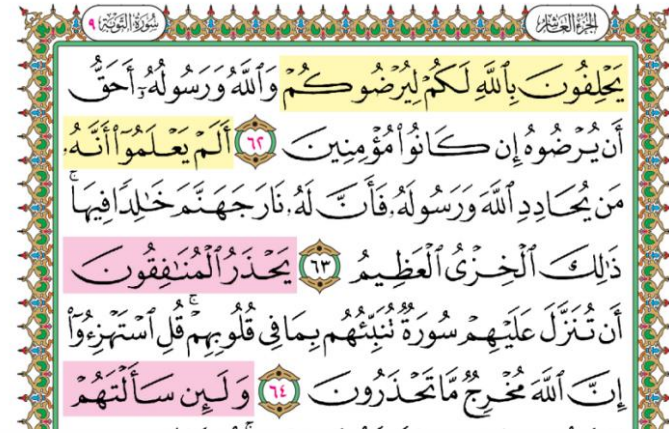 الجزء العاشر
سورة التوبة ٩
يَحْلِفُونَ بِٱللَّهِ لَكُمْ لِيُرْضُوكُمْ وَٱللَّهُ وَرَسُولُهُۥٓ أَحَقُّ
أَن يُرْضُوهُ إِن كَانُوا۟ مُؤْمِنِينَ ٦٢ أَلَمْ يَعْلَمُوٓا۟ أَنَّهُۥ
مَن يُحَادِدِ ٱللَّهَ وَرَسُولَهُۥ فَأَنَّ لَهُۥ نَارَ جَهَنَّمَ خَٰلِدًا فِيهَا ۚ
ذَٰلِكَ ٱلْخِزْىُ ٱلْعَظِيمُ ٦٣ يَحْذَرُ ٱلْمُنَٰفِقُونَ
أَن تُنَزَّلَ عَلَيْهِمْ سُورَةٌ تُنَبِّئُهُم بِمَا فِى قُلُوبِهِمْ ۚ قُلِ ٱسْتَهْزِءُوٓا۟
إِنَّ ٱللَّهَ مُخْرِجٌ مَّا تَحْذَرُونَ ٦٤ وَلَئِن سَأَلْتَهُمْ